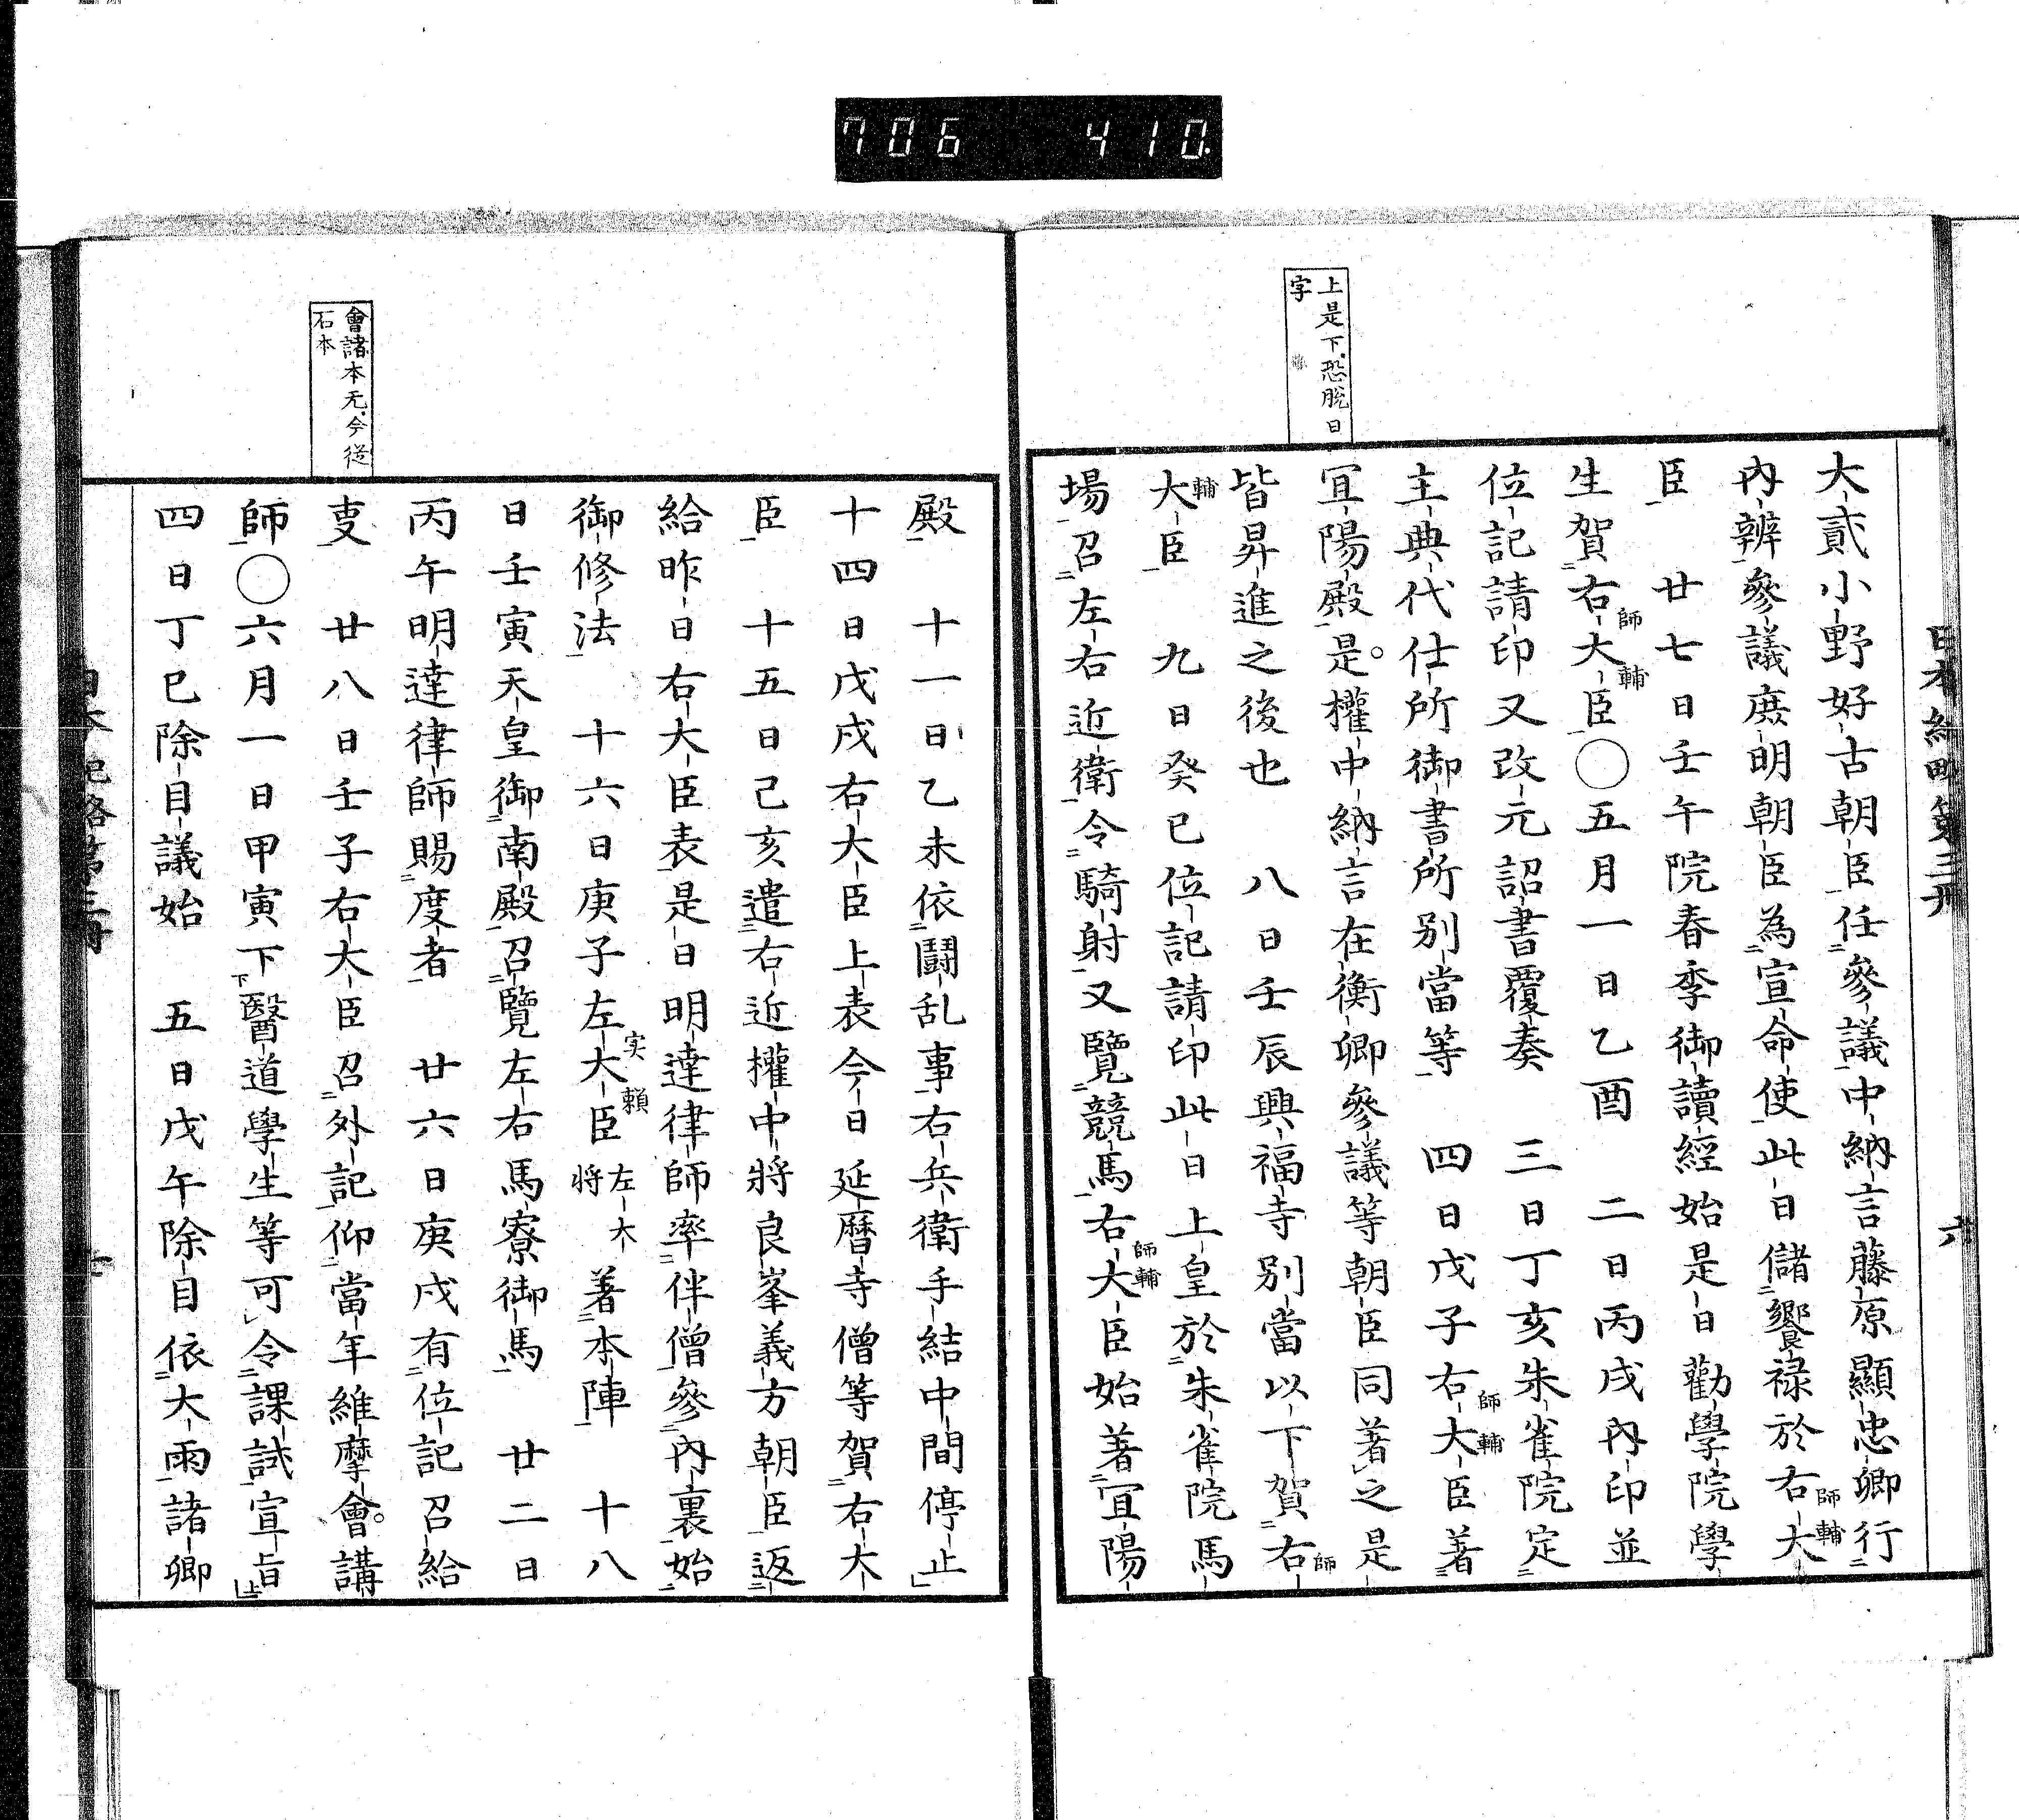 706 410.
日本紀略第三冊 六
上是下、恐脫日
字
大貳小野好古朝臣任參議中納言藤原顯忠卿行
內辨參議庶明朝臣為宣命使此日儲饗祿於右大師輔
臣 廿七日壬午院春季御讀經始是日勸學院學
生賀右大臣師輔〇五月一日乙酉 二日丙戌內印並
位記請印又改元詔書覆奏 三日丁亥朱雀院定
主典代仕所御書所別當等 四日戊子右大臣師輔著
宜陽殿是權中納言在衡卿參議等朝臣同著之是
皆昇進之後也 八日壬辰興福寺別當以下賀右師
大臣輔 九日癸巳位記請印此日上皇於朱雀院馬
場召左右近衛令騎射又覽競馬右大臣師輔始著宜陽
會諸本无、今從
石本
殿 十一日乙未依鬪乱事右兵衛手結中間停止
十四日戊戌右大臣上表今日延曆寺僧等賀右大
臣 十五日己亥遣右近權中將良峯義方朝臣返
給昨日右大臣表是日明達律師率伴僧參內裏始
御修法 十六日庚子左大臣実賴左大將著本陣 十八
日壬寅天皇御南殿召覽左右馬寮御馬 廿二日
丙午明達律師賜度者 廿六日庚戌有位記召給
叓 廿八日壬子右大臣召外記仰當年維摩會講
師〇六月一日甲寅下醫道學生等可令課試宣旨
四日丁巳除目議始 五日戊午除目依大雨諸卿
日本紀略第三冊